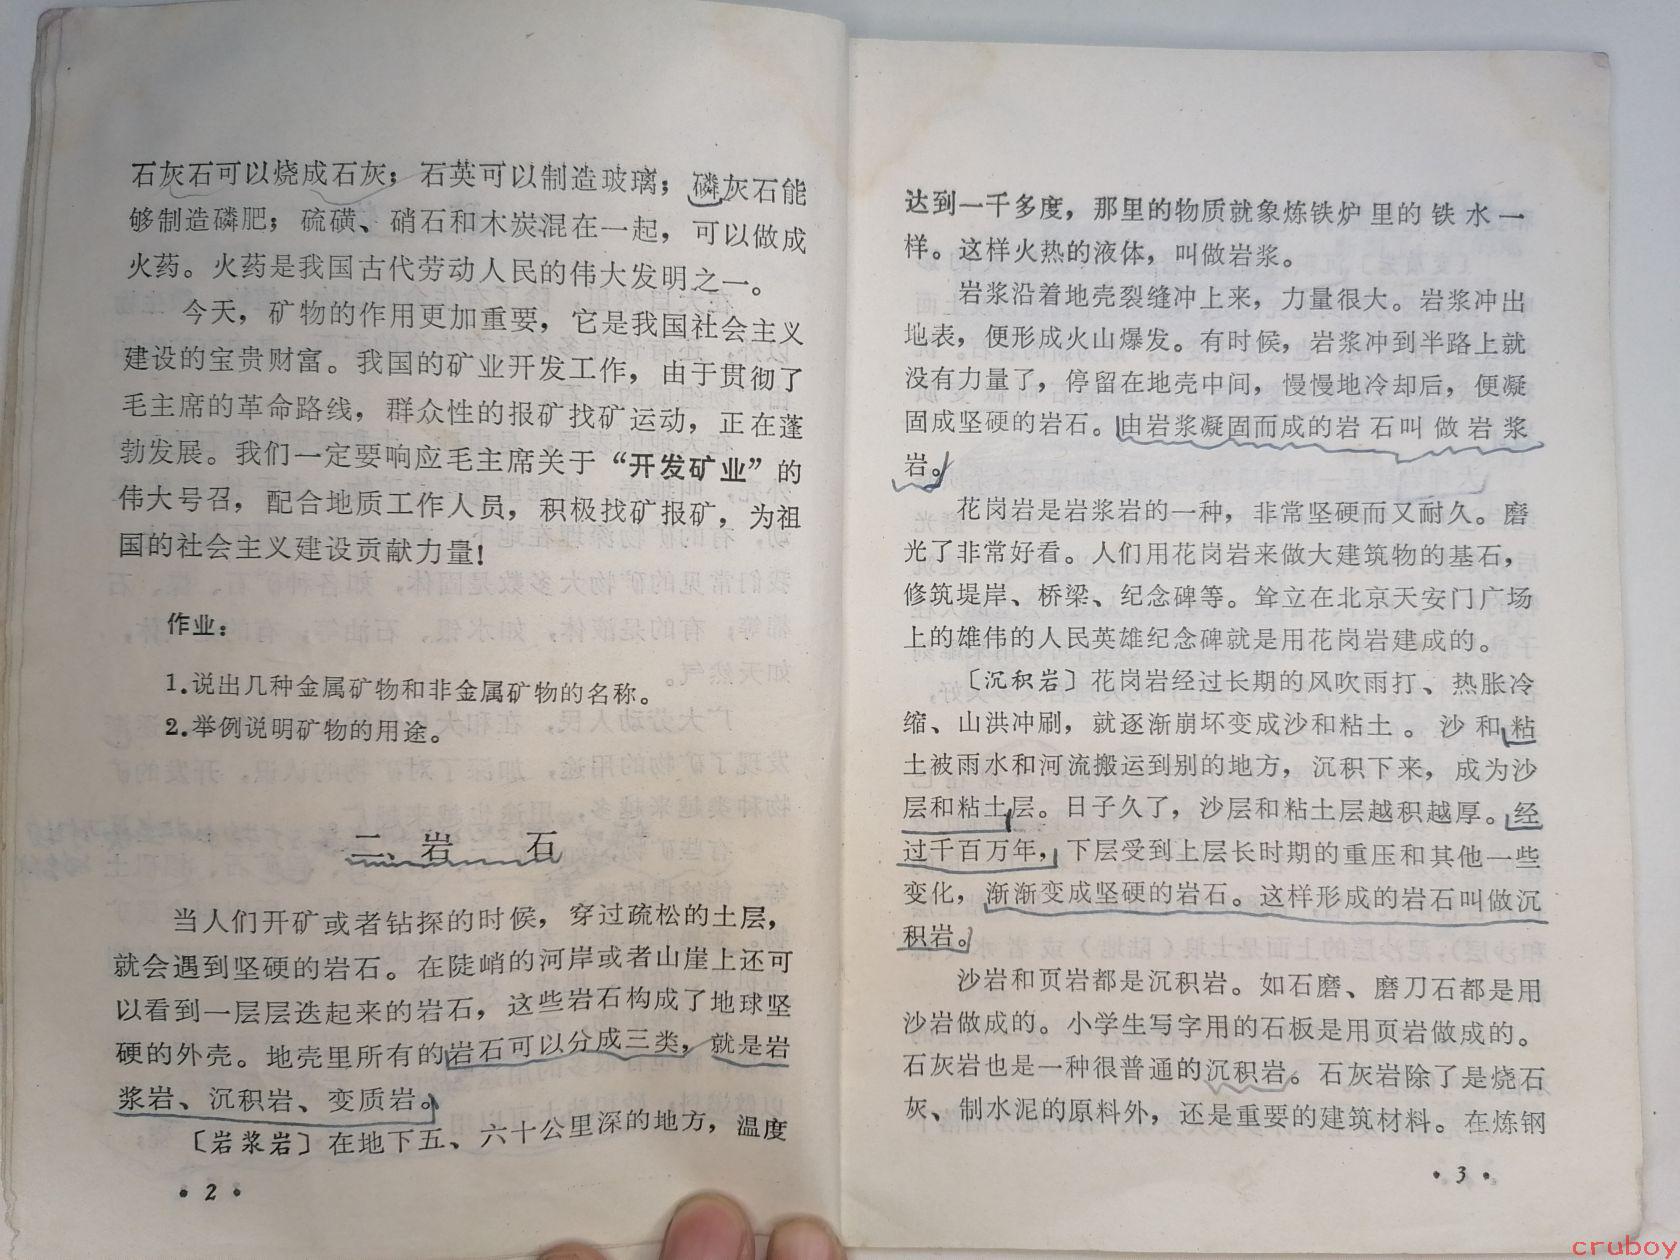 石灰石可以烧成石灰；石英可以制造玻璃；磷灰石能
够制造磷肥；硫磺、硝石和木炭混在一起，可以做成
火药。火药是我国古代劳动人民的伟大发明之一。
今天，矿物的作用更加重要，它是我国社会主义
建设的宝贵财富。我国的矿业开发工作，由于贯彻了
毛主席的革命路线，群众性的报矿找矿运动，正在蓬
勃发展。我们一定要响应毛主席关于“开发矿业”的
伟大号召，配合地质工作人员，积极找矿报矿，为祖
国的社会主义建设贡献力量！
作业：
1.说出几种金属矿物和非金属矿物的名称。
2.举例说明矿物的用途。
二、岩 石
当人们开矿或者钻探的时候，穿过疏松的土层，
就会遇到坚硬的岩石。在陡峭的河岸或者山崖上还可
以看到一层层迭起来的岩石，这些岩石构成了地球坚
硬的外壳。地壳里所有的岩石可以分成三类，就是岩
浆岩、沉积岩、变质岩。
〔岩浆岩〕在地下五、六十公里深的地方，温度
·2·
达到一千多度，那里的物质就象炼铁炉里的铁水一
样。这样火热的液体，叫做岩浆。
岩浆沿着地壳裂缝冲上来，力量很大。岩浆冲出
地表，便形成火山爆发。有时候，岩浆冲到半路上就
没有力量了，停留在地壳中间，慢慢地冷却后，便凝
固成坚硬的岩石。由岩浆凝固而成的岩石叫做岩浆
岩。
花岗岩是岩浆岩的一种，非常坚硬而又耐久。磨
光了非常好看。人们用花岗岩来做大建筑物的基石，
修筑堤岸、桥梁、纪念碑等。耸立在北京天安门广场
上的雄伟的人民英雄纪念碑就是用花岗岩建成的。
〔沉积岩〕花岗岩经过长期的风吹雨打、热胀冷
缩、山洪冲刷，就逐渐崩坏变成沙和粘土。沙和粘
土被雨水和河流搬运到别的地方，沉积下来，成为沙
层和粘土层。日子久了，沙层和粘土层越积越厚。经
过千百万年，下层受到上层长时期的重压和其他一些
变化，渐渐变成坚硬的岩石。这样形成的岩石叫做沉
积岩。
沙岩和页岩都是沉积岩。如石磨、磨刀石都是用
沙岩做成的。小学生写字用的石板是用页岩做成的。
石灰岩也是一种很普通的沉积岩。石灰岩除了是烧石
灰、制水泥的原料外，还是重要的建筑材料。在炼钢
·3·
cruboy